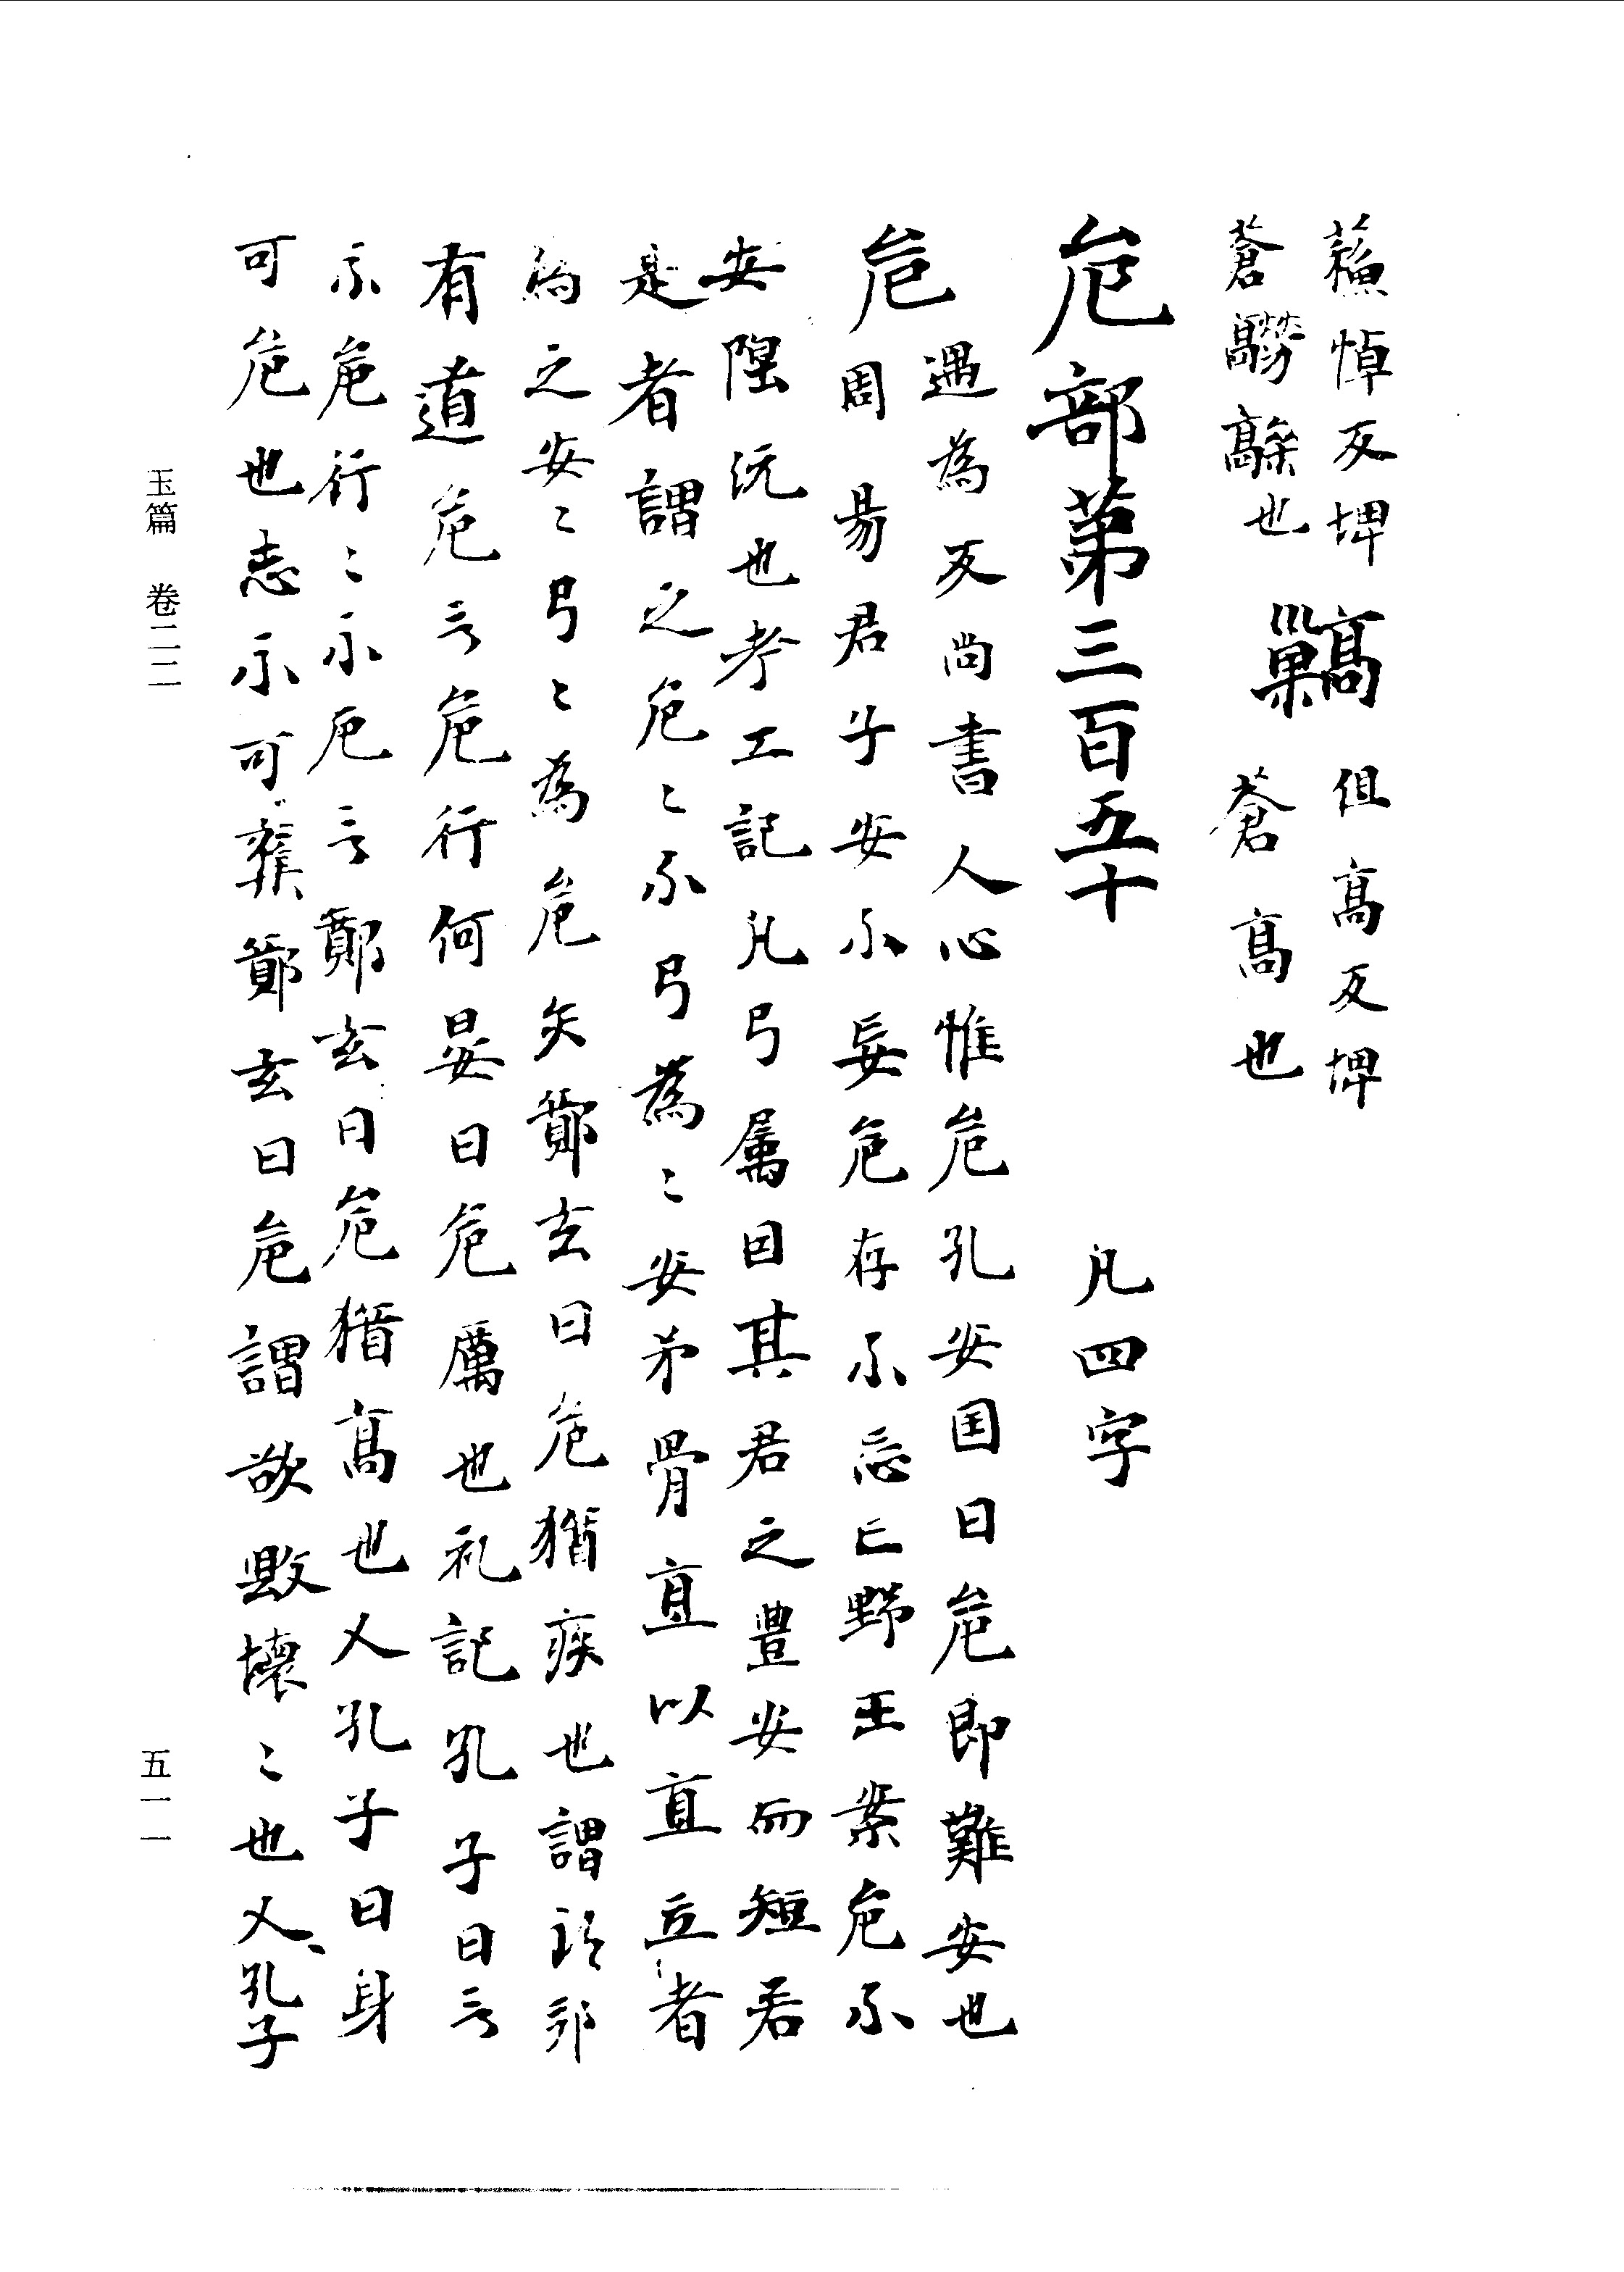 蘓悼反埤
蒼髝髞也
䫿
但髙反埤
蒼髙也
危部苐三百五十 凡四字
危
遇為反尚書人心惟危孔安国曰危即難安也
周易君子安不妄危存不忘亡野王案危不
安隉沅也考工記凡弓属因其君之豊安而短若
是者謂之危〻不弓為〻安弟骨直以直立者
為之安〻弓〻為危矢鄭玄曰危猶疾也謂
有道危言危行何晏曰危厲也礼記孔子曰言
不危行〻不危言鄭玄曰危猶髙也又孔子曰身
可危也志不可奪鄭玄曰危謂欲毀壊〻也又孔子
玉篇 卷二二
五一一